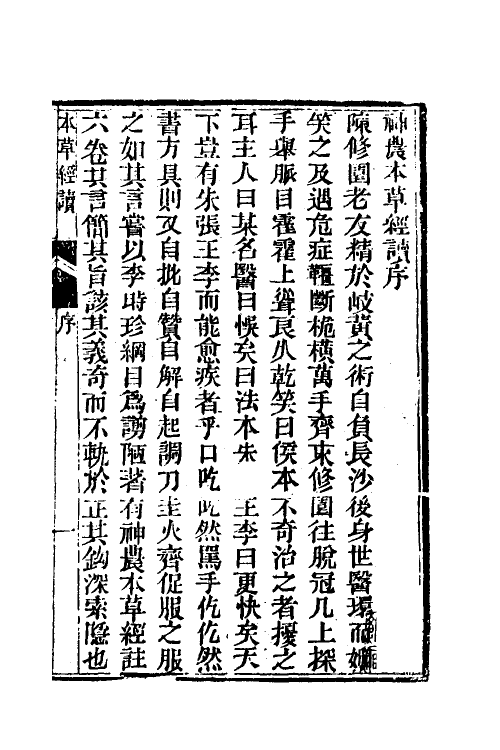 神農本草經讀序
陳修園老友精於岐黃之術自負長沙後身世醫環而姍
笑之及遇危症輒斷桅橫萬手齊束修園往脫冠几上探
手舉脈目霍霍上聳良久乾笑曰候本不奇治之者擾之
耳主人曰某名醫曰悞矣曰法本朱 王李曰更快矣天
下豈有朱張王李而能愈疾者乎口吃吃然罵手仡仡然
書方具則又自批自贊自解自起調刀圭火齊促服之服
之如其言嘗以李時珍綱目為謭陋著有神農本草經註
六卷其言簡其旨該其義奇而不軌於正其鉤深索隱也
本草經讀
序
一